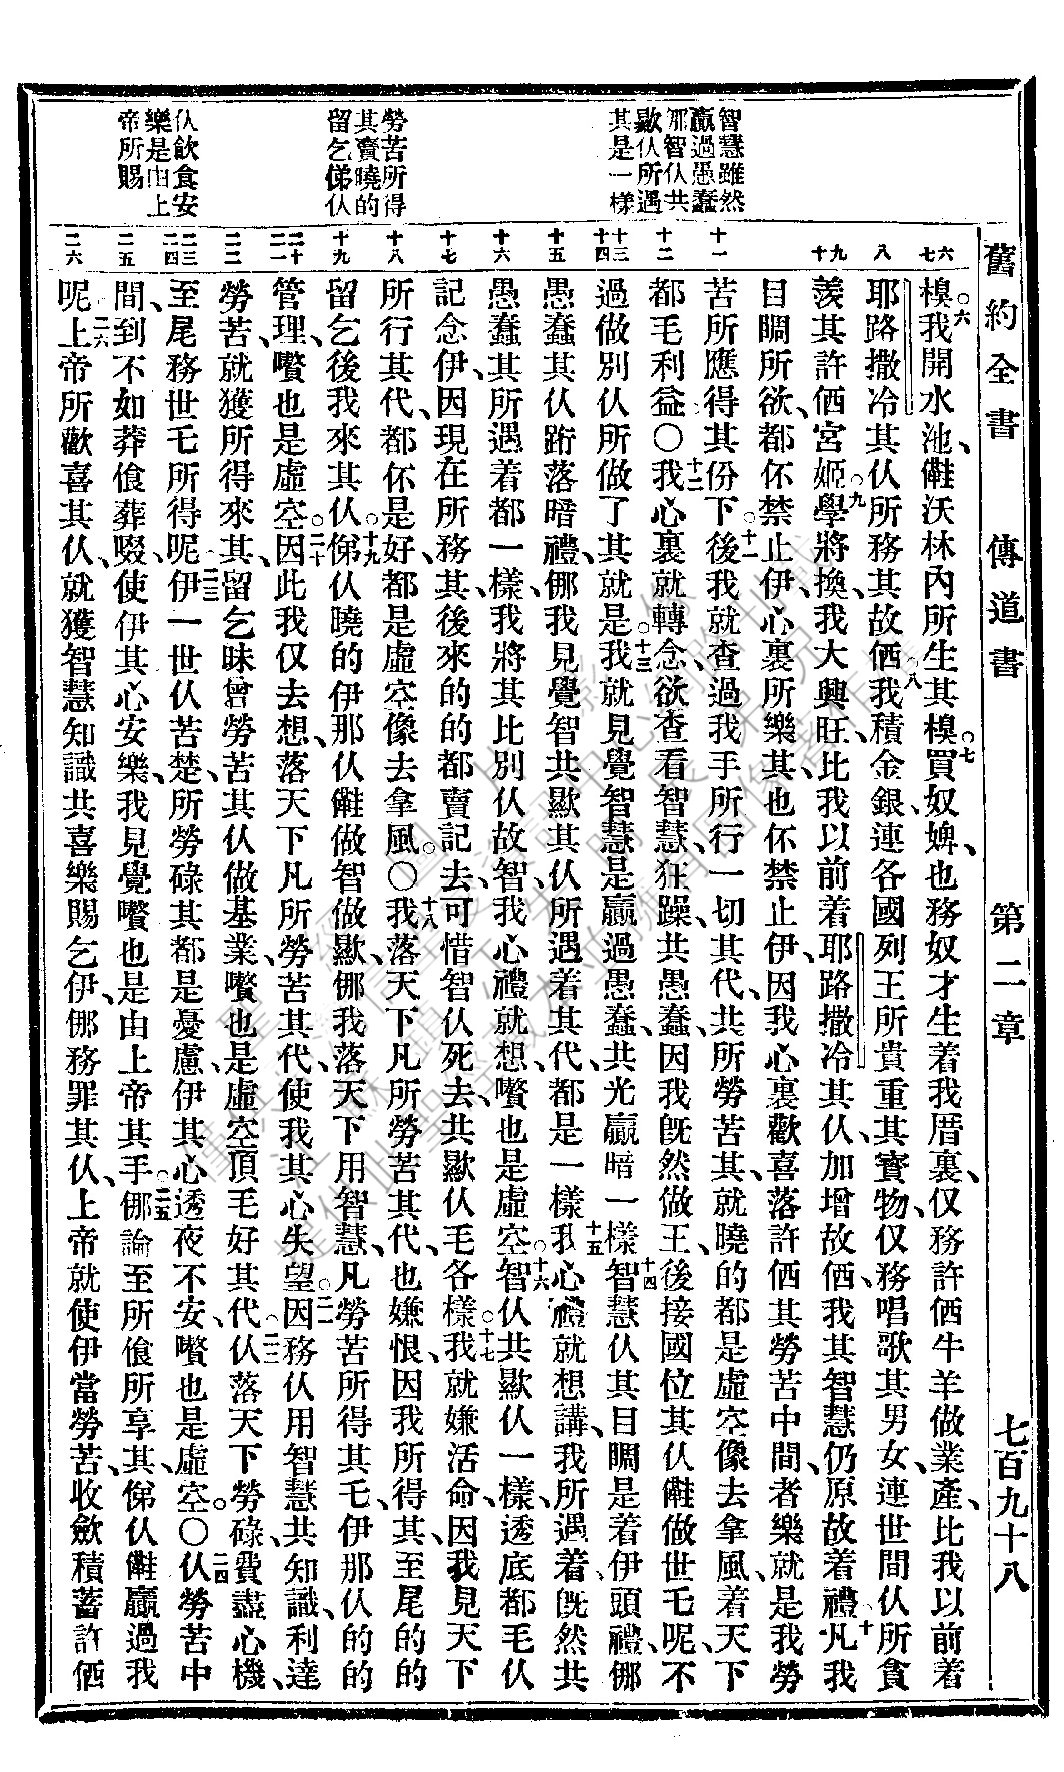 舊約全書 傳道書 第二章 七百九十八
智慧雖然
贏過愚蠢
那智仈共
歞仈所遇
其是一樣
勞苦所得
其賣曉的
留乞俤仈
仈飲食安
樂是由上
帝所賜
六 七 八 九 十 十一 十二 十三 十四 十五 十六 十七 十八 十九 二十 二一 二二 二三 二四 二五 二六
樔○六我開水池、䧹沃林內所生其樔○七買奴婢、也務奴才生着我厝裏、仅務許価牛羊做業產、比我以前着
耶路撒冷其仈所務其故価○八我積金銀、連各國列王所貴重其寶物、仅務唱歌其男女、連世間仈所貪
羨其許価宮姬○九學將換、我大興旺、比我以前着耶路撒冷其仈、加增故価、我其智慧仍原故着禮○十凡我
目瞯所欲、都伓禁止伊、心裏所樂其、也伓禁止伊、因我心裏歡喜落許価其勞苦中間、者樂就是我勞
苦所應得其份下○十一後我就查過我手所行一切其代、共所勞苦其、就曉的都是虛空、像去拿風、着天下
都毛利益○十二我心裏就轉念、欲查看智慧、狂躁、共愚蠢、因我旣然做王、後接國位其仈䧹做世乇呢、不
過做別仈所做了其就是○十三我就見覺智慧是贏過愚蠢、共光贏暗一樣○十四智慧仈其目瞯是着伊頭禮、㑚
愚蠢其仈跕落暗禮、㑚我見覺智共歞其仈、所遇着其代、都是一樣○十五我心禮就想講、我所遇着旣然共
愚蠢其所遇着都一樣、我將其比別仈故智、我心禮就想、嚽也是虛空○十六智仈共歞仈一樣、透底都毛仈
記念伊、因現在所務其、後來的的都賣記去、可惜智仈死去、共歞仈毛各樣○十七我就嫌活命、因我見天下
所行其代、都伓是好、都是虛空、像去拿風○十八我落天下凡所勞苦其代、也嫌恨、因我所得其、至尾的的
留乞後我來其仈○十九俤仈曉的伊那仈䧹做智做歞、㑚我落天下用智慧、凡勞苦所得其乇、伊那仈的的
管理、嚽也是虛空○二十因此我仅去想、落天下凡所勞苦其代、使我其心失望○二一因務仈用智慧、共知識、利達
勞苦、就獲所得來其、留乞昧曾勞苦其仈做基業、嚽也是虛空、頂毛好其代○二二仈落天下勞碌、費盡心機、
至尾務世乇所得呢○二三伊一世仈苦楚、所勞碌其都是憂慮、伊其心透夜不安、嚽也是虛空○二四仈勞苦中
間、到不如莽飡葬啜、使伊其心安樂、我見覺嚽也是由上帝其手○二五㑚論至所飡所享其、俤仈䧹贏過我
呢○二六上帝所歡喜其仈、就獲智慧知識共喜樂賜乞伊、㑚務罪其仈、上帝就使伊當勞苦、收斂積蓄許価